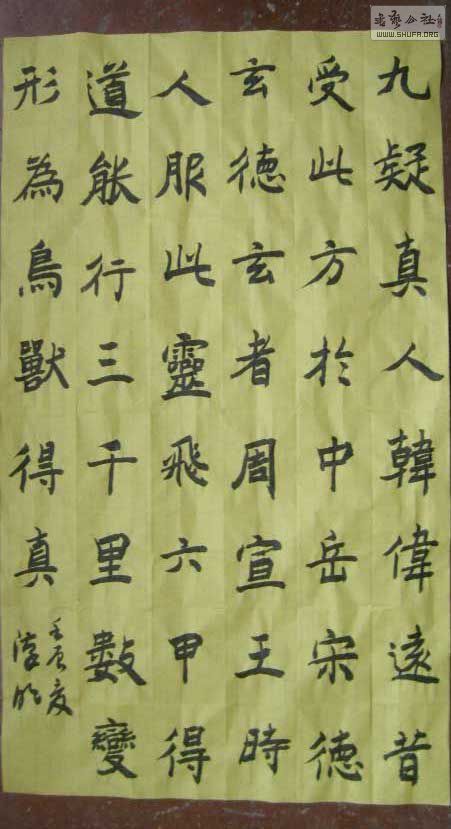 九疑真人韓偉遠昔
受此方於中岳宋德
玄德玄者周宣王時
人服此靈飛六甲得
道能行三千里數變
形為鳥獸得真
壬辰夏
WWW.SHUFA.ORG